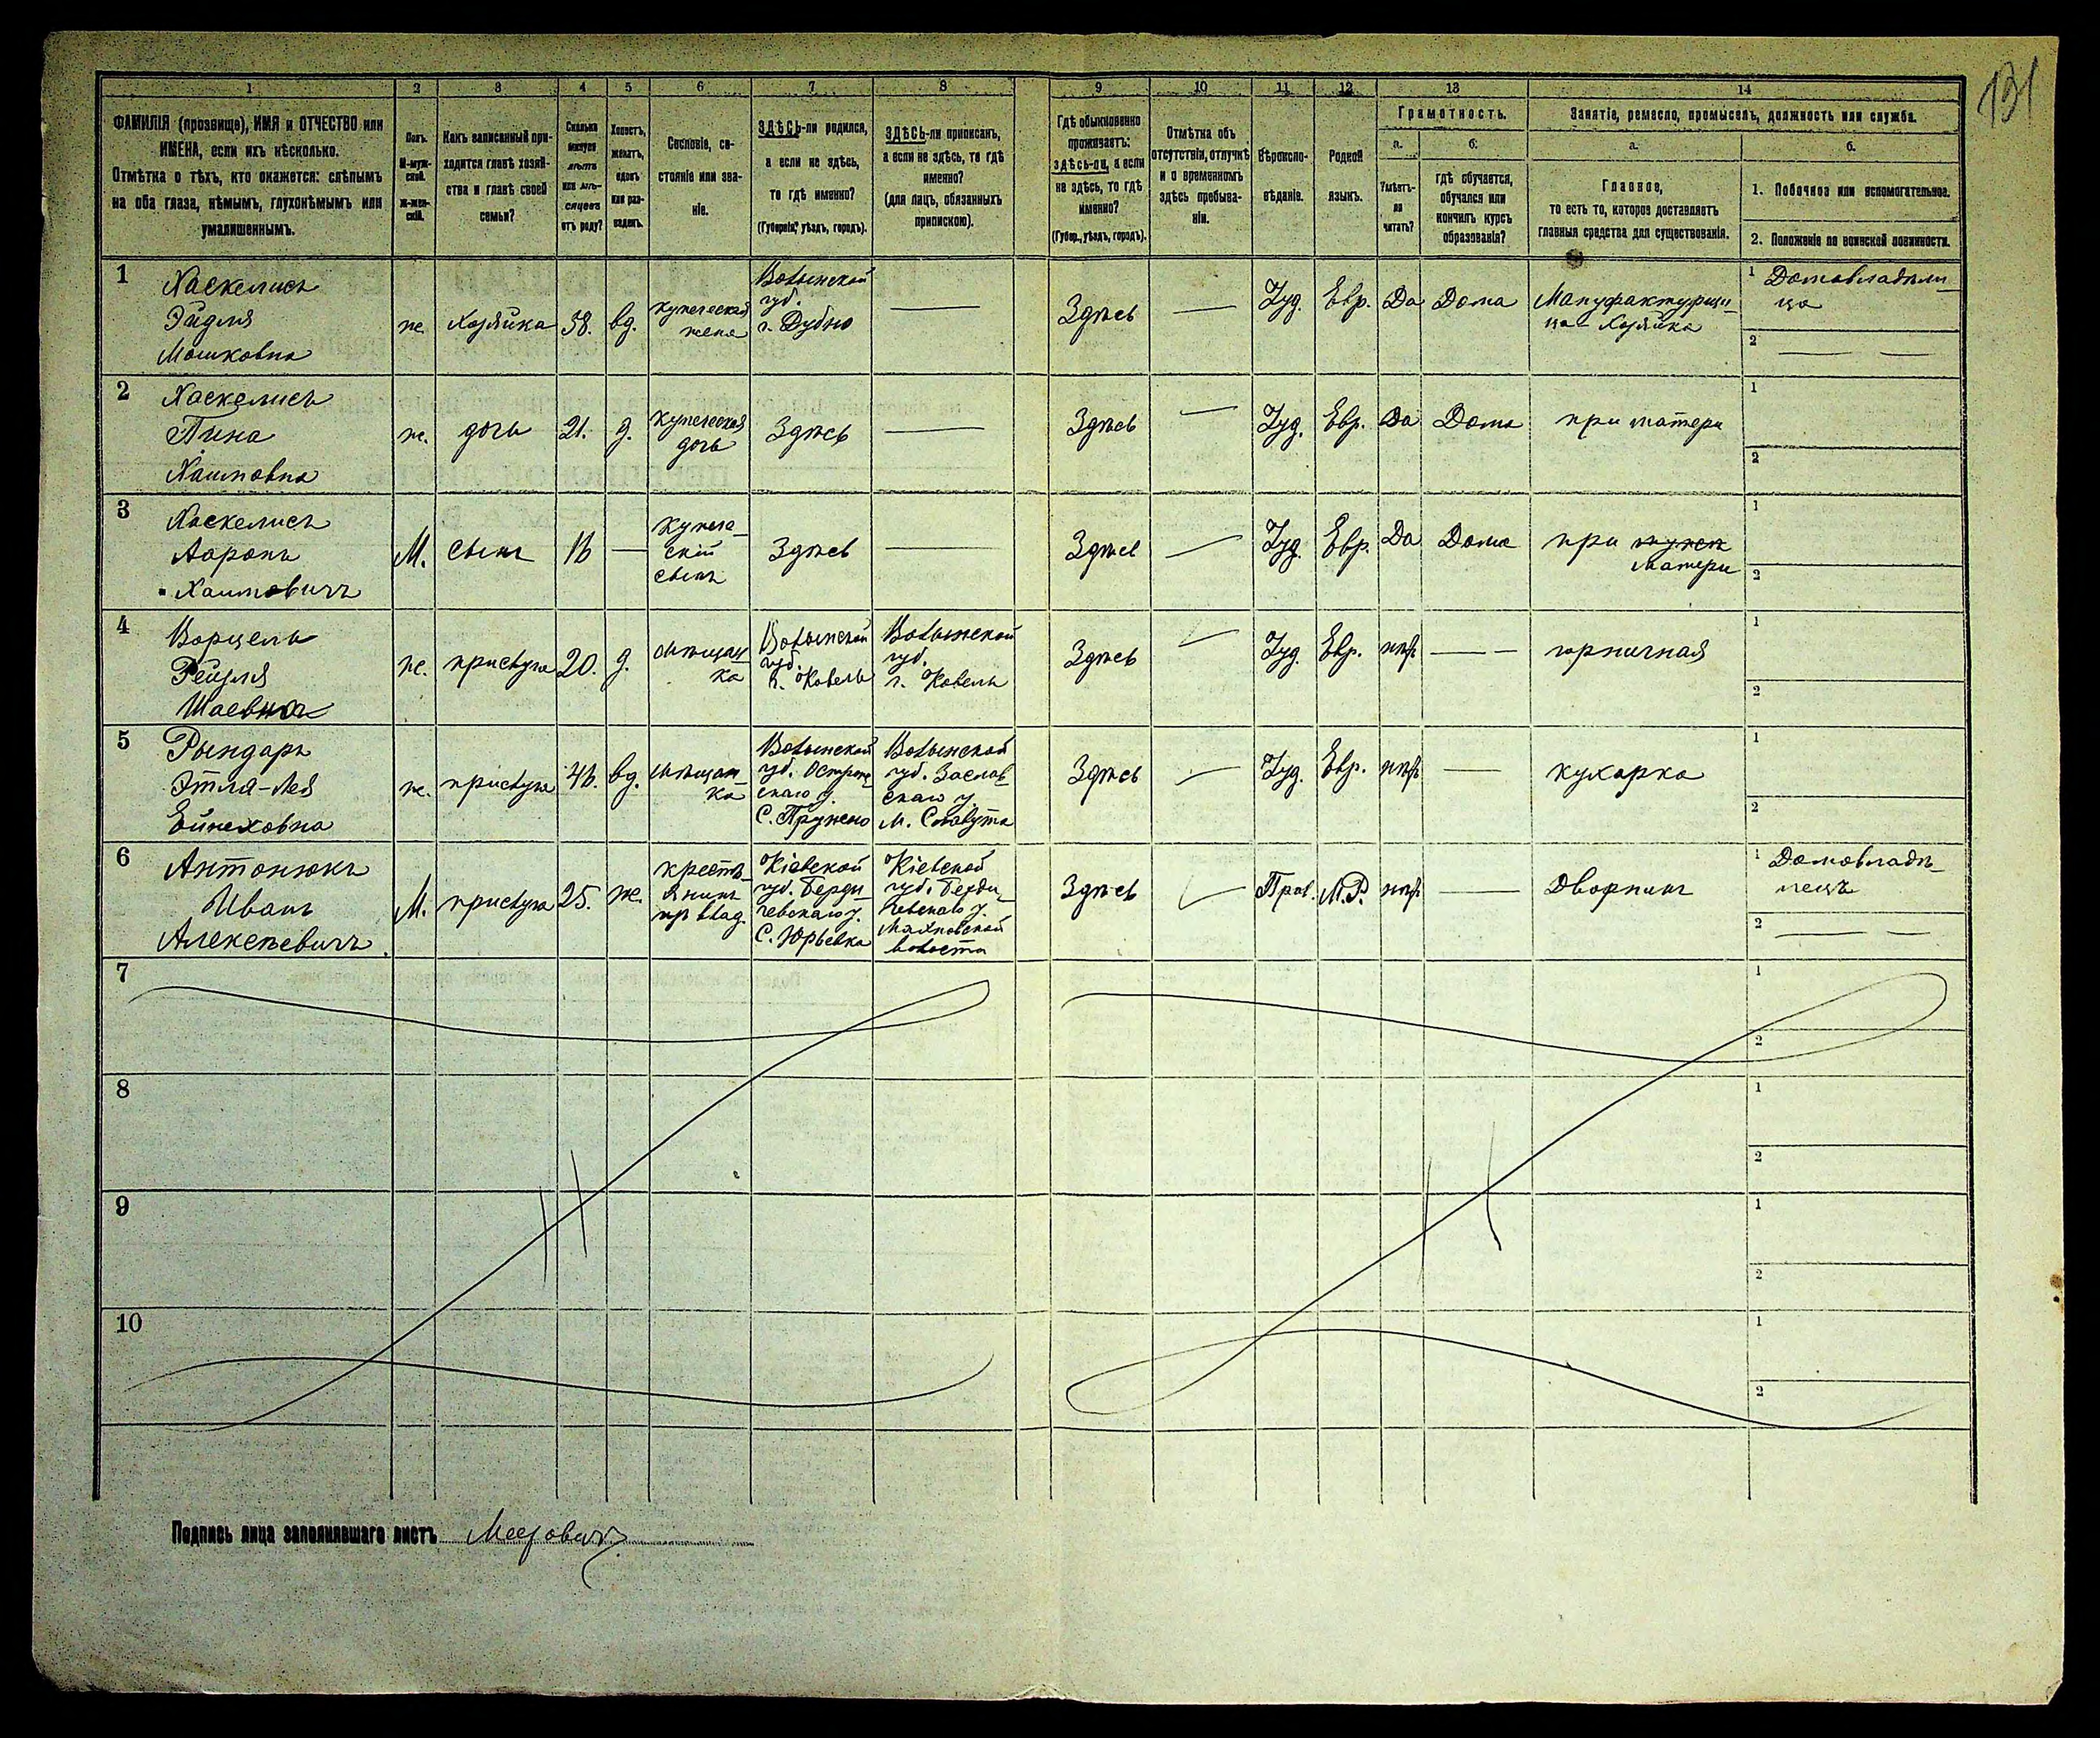 131
1 2 3 4 5 6 7 8 9 10 11 12 13 14
ФАМИЛІЯ (прозвище), ИМЯ и ОТЧЕСТВО или
ИМЕНА, если ихъ нѣсколько.
Отмѣтка о тѣхъ, кто окажется: слѣпымъ
на оба глаза, нѣмымъ, глухонѣмымъ или
умалишеннымъ.
Полъ.
М-муж-
ской.
Ж-жен-
скій.
Какъ записанный при-
ходится главѣ хозяй-
ства и главѣ своей
семьи?
Сколько
минуло
лѣтъ
или мѣ-
сяцевъ
отъ роду?
Холостъ,
женатъ,
вдовъ
или раз-
веденъ.
Сословіе, со-
стояніе или зва-
ніе.
ЗДѢСЬ-ли родился,
а если не здѣсь,
то гдѣ именно?
(Губернія, уѣздъ, городъ).
ЗДѢСЬ-ли приписанъ,
а если не здѣсь, то гдѣ
именно?
(для лицъ, обязанныхъ
припискою).
Гдѣ обыкновенно
проживаетъ:
здѣсь-ли, а если
не здѣсь, то гдѣ
именно?
(Губер., уѣздъ, городъ).
Отмѣтка объ
отсутствіи, отлучкѣ
и о временномъ
здѣсь пребыва-
ніи.
Вѣроиспо-
вѣданіе.
Родной
языкъ.
Грамотность.
а.
Умѣетъ-
ли
читать?
б.
гдѣ обучается,
обучался или
кончилъ курсъ
образованія?
Занятіе, ремесло, промыселъ, должность или служба.
а.
Главное,
то есть то, которое доставляетъ
главныя средства для существованія.
б.
1. Побочное или вспомогательное.
2. Положеніе по воинской повинности.
1
Хаскелисъ
Эйдля
Мошковна
ж.
хозяйка
58.
вд.
купеческая
жена
Волынской
губ.
г. Дубно
Здѣсь
Іуд.
Евр.
Да
Дома
Мануфактурщи-
ца-хозяйка
1 Домовладѣли-
ца
2
2
Хаскелисъ
Пина
Хаимовна
ж.
дочь
21.
д.
купеческая
дочь
Здѣсь
Здѣсь
Іуд.
Евр.
Да
Дома
при матери
1
2
3
Хаскелисъ
Ааронъ
Хаимовичъ
М.
сынъ
16
купече-
скій
сынъ
Здѣсь
Здѣсь
Іуд.
Евр.
Да
Дома
при
матери
1
2
4
Ворцель
Рейзля
Шаевна
ж.
прислуга
20.
д.
мѣщан-
ка
Волынской
губ.
г. Ковель
Волынской
губ.
г. Ковель
Здѣсь
Іуд.
Евр.
нѣт
горничная
1
2
5
Рындаръ
Этля-Лея
Ейнеховна
ж.
прислуга
46.
вд.
мѣщан-
ка
Волынской
губ. Острож-
скаго у.
С. Пружено
Волынской
губ. Заслав-
скаго у.
М. Славута
Здѣсь
Іуд.
Евр.
нѣт
кухарка
1
2
6
Антонюкъ
Иванъ
Алексѣевичъ
М.
прислуга
25.
ж.
кресть-
янинъ
Кіевской
губ. Берди-
чевскаго у.
С. Юрьевка
Кіевской
губ. Берди-
чевскаго у.
Махновской
волости
Здѣсь
Прав.
М.Р.
нѣт
Дворникъ
1 Домовладѣ-
лецъ
2
7
1
2
8
1
2
9
1
2
10
1
2
Подпись лица заполнявшаго листъ